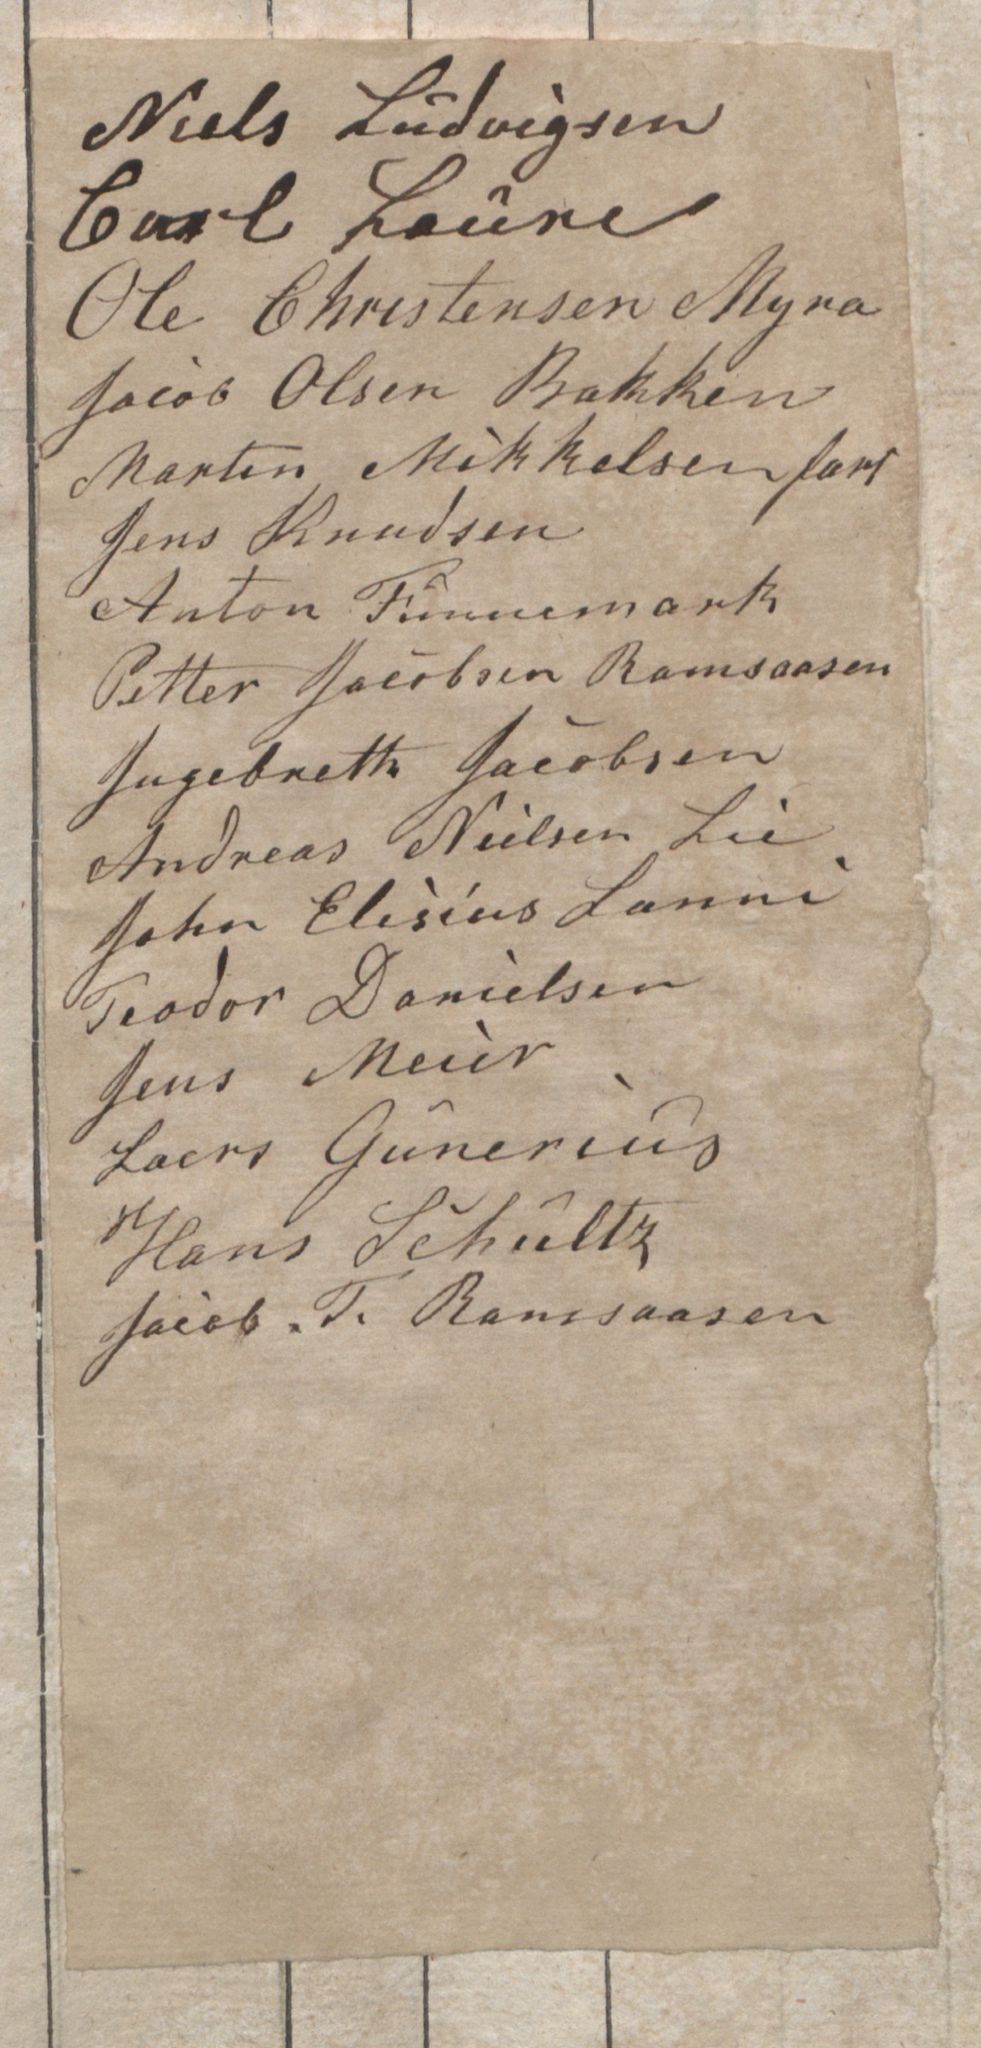 Niels Ludvigsen
Carl Laure
Ole Christensen Myra
Jacob Olsen Bakken
Marten Mikkelsen
Jens Knudsen
Anton Finnemark
Petter Jacobsen Ramsaasen
Ingebreth Jacobsen
Andreas Nielsen Lie
John Elisius Lunni
Teodor Danielsen
Jens Meier
Laers Gunerius
Hans Schultz
Jacob. T. Ramsaasen